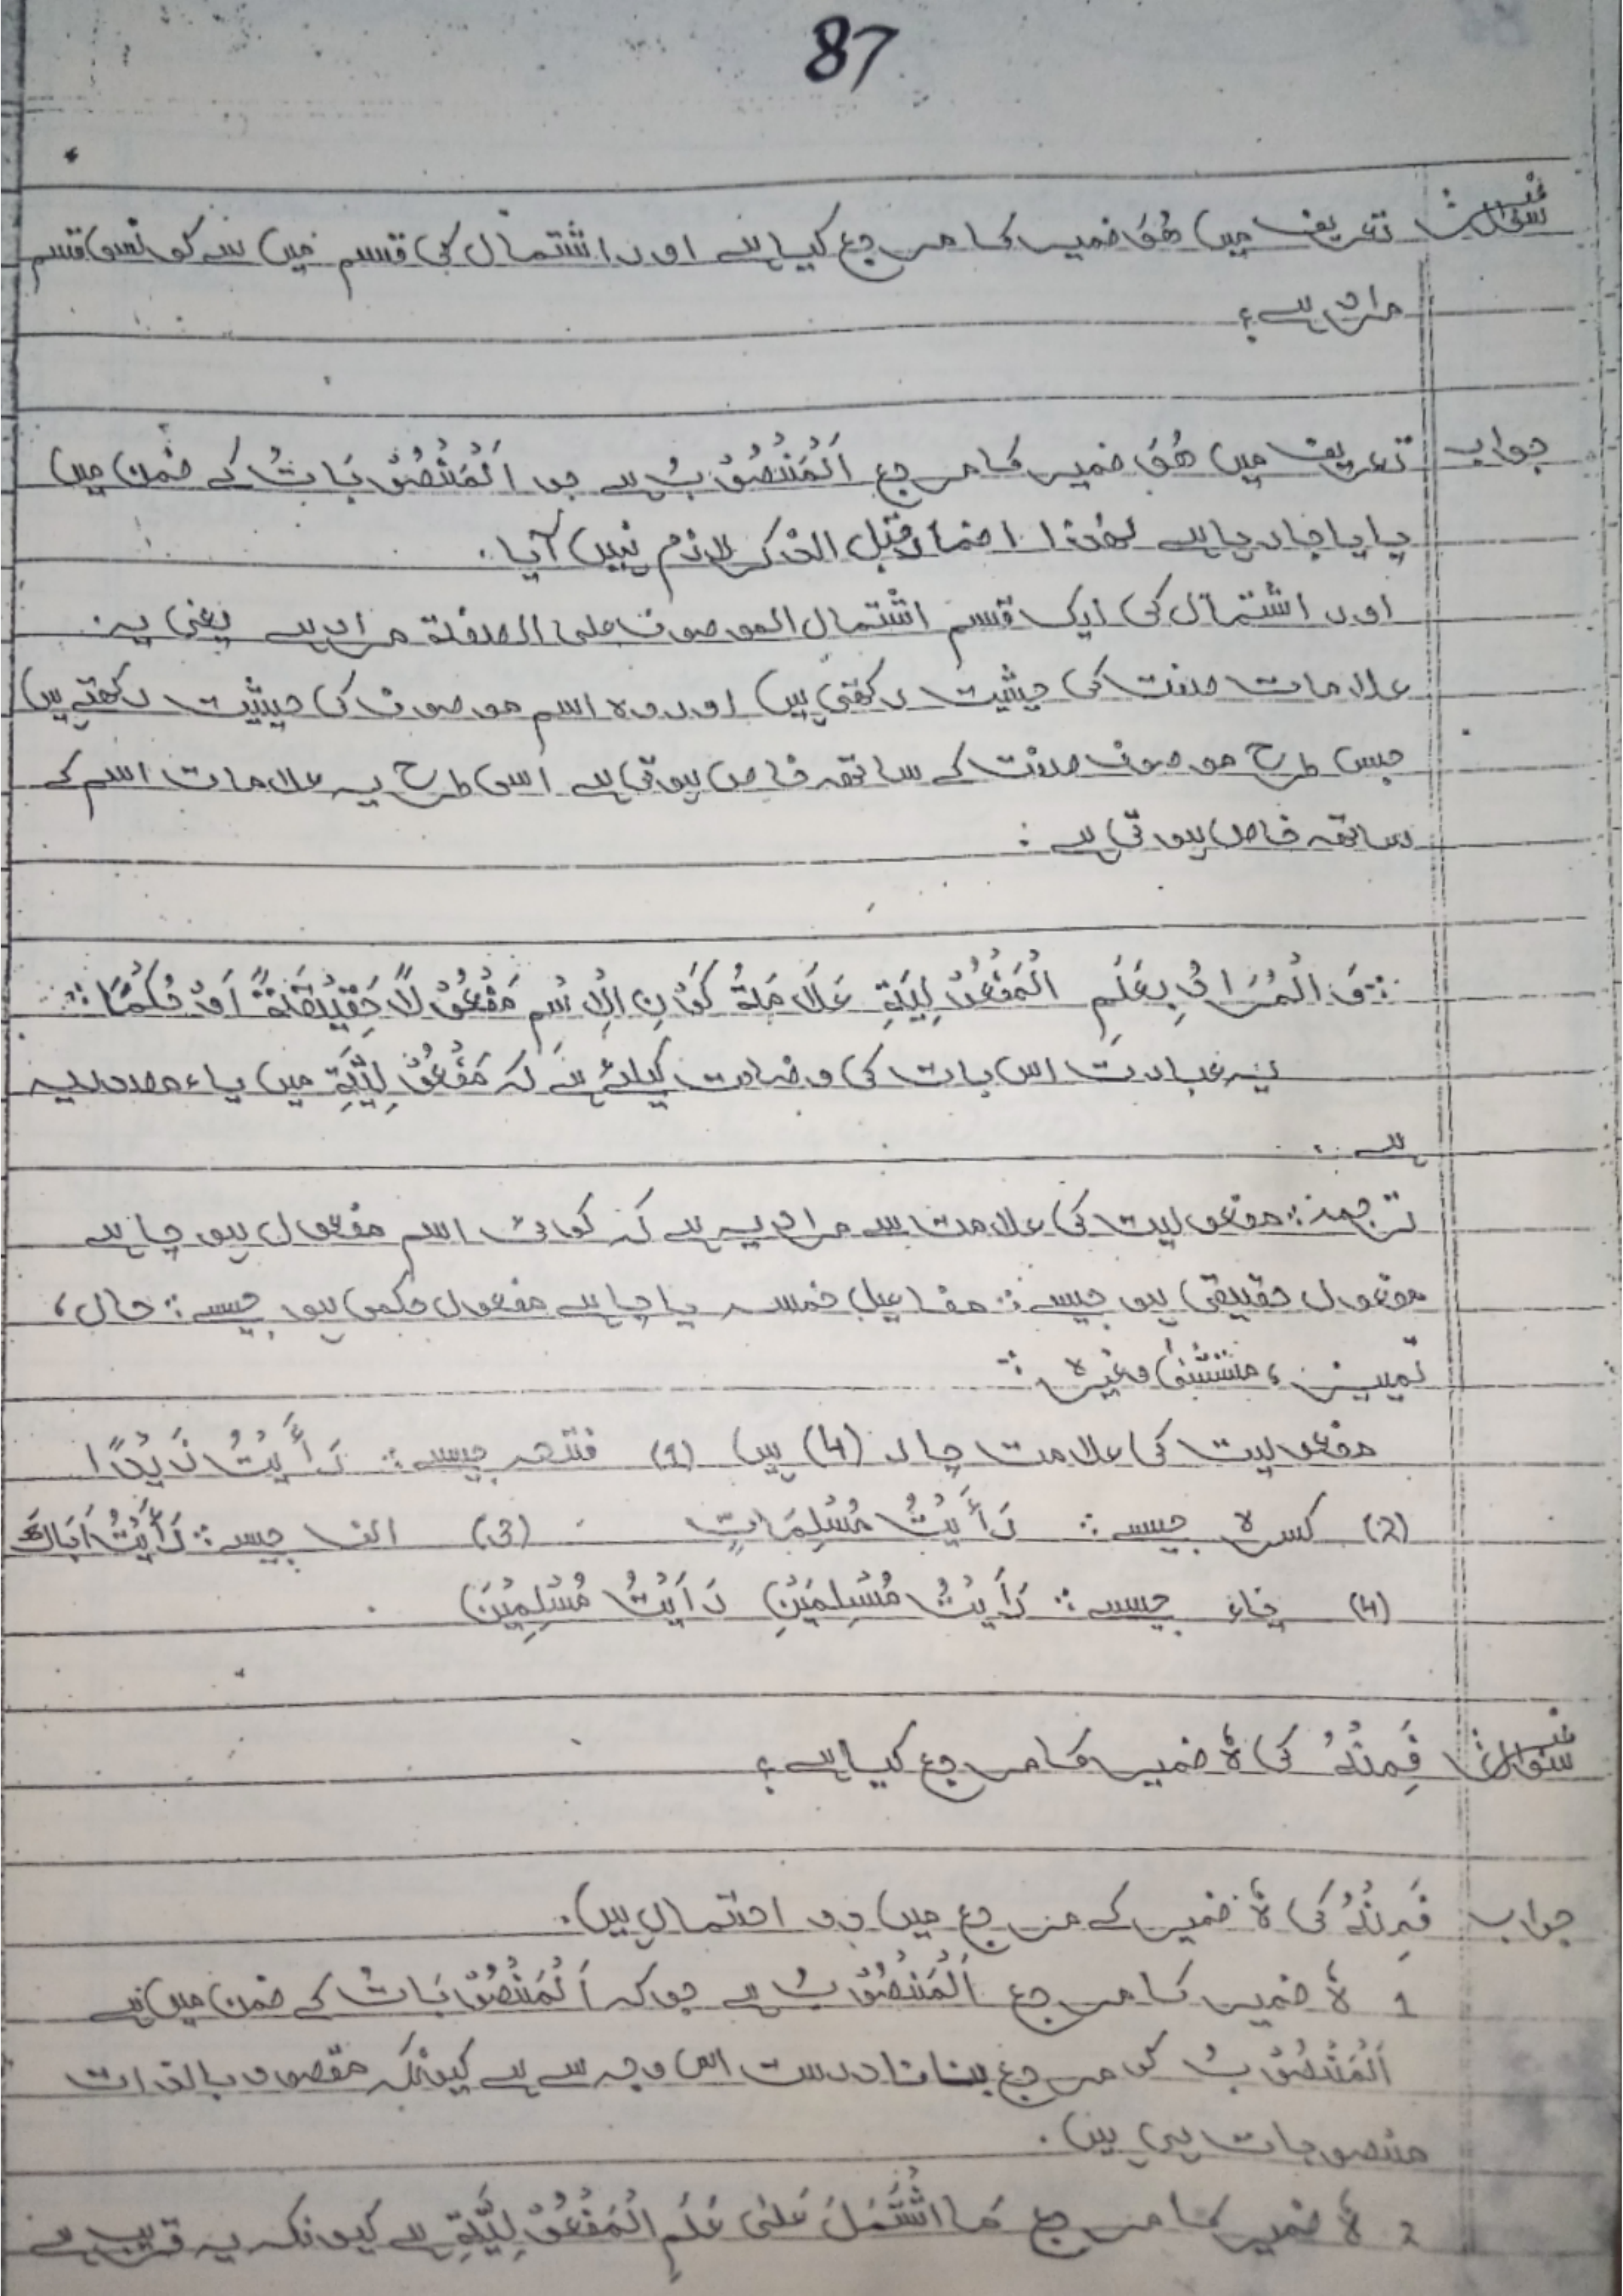 87
سوال تعریف میں ھُوَ ضمیر کا مرجع کیا ہے اور اشتمال کی قسم میں سے کونسی قسم
مراد ہے؟
جواب تعریف میں ھُوَ ضمیر کا مرجع اَلْمَنْصُوْبُ ہے جو اَلْمَنْصُوْبَاتُ کے ضمن میں
پایا جا رہا ہے لھٰذا اضمار قبل الذکر لازم نہیں آیا۔
اور اشتمال کی ایک قسم اشتمال الموصوف علی الصفۃ مراد ہے یعنی یہ
علامات صفت کی حیثیت رکھتی ہیں اور وہ اسم موصوف کی حیثیت رکھتے ہیں
جس طرح موصوف صفت کے ساتھ خاص ہوتی ہے اسی طرح یہ علامات اسم کے
ساتھ خاص ہوتی ہے :
:: وَ الْمُرَادُ بِعَلَمِ الْمَفْعُوْلِيَةِ عَلَامَةُ كَوْنِ الْاِسْمِ مَفْعُوْلًا حَقِيْقَةً اَوْ حُكْمًا ::
یہ عبارت اس بات کی وضاحت کیلئے ہے کہ مَفْعُوْلِيَّةِ میں یاء مصدریہ
ہے ۔
ترجمہ :: مفعولیت کی علامت سے مراد یہ ہے کہ کوئی اسم مفعول ہو چاہے
مفعول حقیقی ہو جیسے :: مفاعیل خمسہ یا چاہے مفعول حکمی ہو جیسے :: حال ،
تمییز ، مستثنیٰ وغیرہ ::
مفعولیت کی علامت چار (4) ہیں (1) فتحہ جیسے :: رَأَيْتُ زَيْدًا
(2) کسرہ جیسے :: رَأَيْتُ مُسْلِمَاتٍ (3) الف جیسے :: رَأَيْتُ اَبَاكَ
(4) یاء جیسے :: رَأَيْتُ مُسْلِمَيْنِ رَأَيْتُ مُسْلِمِيْنَ
سوال فَمِنْهُ کی ہٗ ضمیر کا مرجع کیا ہے ؟
جواب فَمِنْهُ کی ہٗ ضمیر کے مرجع میں دو احتمال ہیں۔
1 ہٗ ضمیر کا مرجع اَلْمَنْصُوْبُ ہے جو کہ اَلْمَنْصُوْبَاتُ کے ضمن میں ہے
اَلْمَنْصُوْبُ کو مرجع بنانا درست اس وجہ سے ہے کیونکہ مقصود بالذات
منصوبات ہی ہیں ۔
2 ہٗ ضمیر کا مرجع مَا اشْتَمَلَ عَلىٰ عَلَمِ الْمَفْعُوْلِيَّةِ ہے کیونکہ یہ قریب ہے